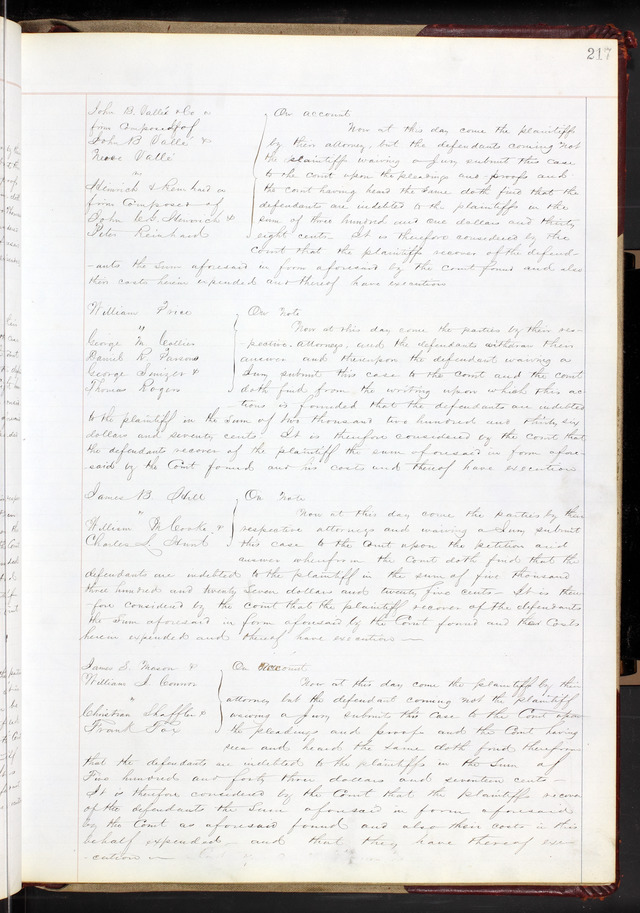 217
John B. Vallé & Co a
firm Composed of
John B Vallé &
Vallé
vs
Heinrich & Reinhard a
firm Composed of
John Heinrich &
Peter Reinhard
On account
Now at this day come the plaintiffs
by their attorney, but the defendants coming not
the plaintiff waiving a Jury submit this case
to the Court upon the pleadings and proofs and
the Court having heard the same doth find that the
defendants are indebted to the plaintiffs in the
sum of three hundred and one dollars and thirty
eight cents. It is therefore considered by the
Court that the plaintiffs recover of the defend-
-ants the sum aforesaid in form aforesaid by the Court found and also
their costs herein expended and thereof have execution
William Price
"
George M. Collier
Daniel R. Parsons
George &
Thomas Rogers
On Note
Now at this day come the parties by their res-
pective attorneys, and the defendants withdraw their
answer and thereupon the defendant waiving a
Jury submit this case to the Court and the Court
doth find from the writing upon which this ac-
tions is founded that the defendants are indebted
to the plaintiff in the sum of Two thousand two hundred and thirty six
dollars and seventy cents. It is therefore considered by the Court that
the defendants recover of the plaintiff the sum aforesaid in form afore-
said by the Court found and his costs and thereof have execution
James B. Hill
"
William M Cooke &
Charles L. Hunt
On Note
Now at this day come the parties by their
respective attorneys and waiving a Jury submit
this case to the Court upon the petition and
answer wherefrom the Court doth find that the
defendants are indebted to the plaintiff in the sum of five thousand
three hundred and twenty Seven dollars and twenty five cents - It is there
-fore considered by the Court that the plaintiff recover of the defendants
the sum aforesaid in form aforesaid by the Court found and his Costs
herein expended and thereof have execution -
James S. Mason &
William J. Connor
"
Christian Shaffter &
Frank Fox
On Account
Now at this day come the plaintiff by their
attorney but the defendant coming not the plaintiff
waiving a Jury submits this Case to the Court upon
the pleadings and proofs and the Court having
seen and heard the same doth find therefrom
that the defendants are indebted to the plaintiffs in the Sum of
Five hundred and forty three dollars and seventeen cents -
It is therefore considered by the Court that the plaintiffs recover
of the defendants the Sum aforesaid in form aforesaid
by the Court as aforesaid found and also their costs in this
behalf expended - and that they have thereof exe-
-cution -